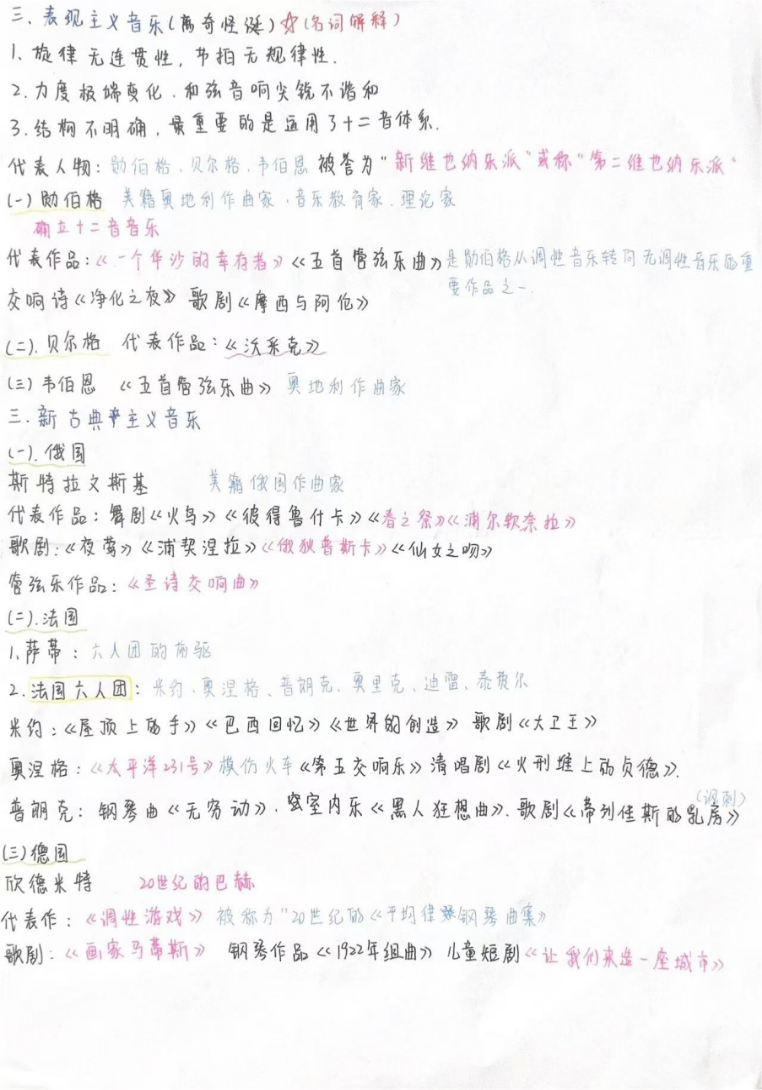 三.表现主义音乐(离奇怪诞)☆(名词解释)
1、旋律无连贯性，节拍无规律性.
2.力度极端变化.和弦音响尖锐不谐和
3.结构不明确，最重要的是运用了十二音体系.
代表人物：勋伯格、贝尔格、韦伯恩 被誉为"新维也纳乐派"或称"第二维也纳乐派"
(一)勋伯格 美籍奥地利作曲家、音乐教育家、理论家
确立十二音音乐
代表作品：《一个华沙的幸存者》《五首管弦乐曲》是勋伯格从调性音乐转向无调性音乐的重
要作品之一.
交响诗《净化之夜》 歌剧《摩西与阿伦》
(二).贝尔格 代表作品：《沃采克》
(三)韦伯恩 《五首管弦乐曲》 奥地利作曲家
三.新古典主义音乐
(一).俄国
斯特拉文斯基 美籍俄国作曲家
代表作品：舞剧《火鸟》《彼得鲁什卡》《春之祭》《浦尔钦奈拉》
歌剧：《夜莺》《浦契涅拉》《俄狄普斯卡》《仙女之吻》
管弦乐作品：《圣诗交响曲》
(二).法国
1、萨蒂：六人团的前驱
2.法国六人团：米约、奥涅格、普朗克、奥里克、迪雷、泰费尔
米约：《屋顶上的牛》《巴西回忆》《世界的创造》 歌剧《大卫王》
奥涅格：《太平洋231号》模仿火车《第五交响乐》清唱剧《火刑堆上的贞德》.
普朗克：钢琴曲《无穷动》.室内乐《黑人狂想曲》.歌剧《蒂列佳斯的乳房》(讽刺)
(三)德国
欣德米特 20世纪的巴赫
代表作：《调性游戏》被称为"20世纪的《平均律钢琴曲集》
歌剧：《画家马蒂斯》 钢琴作品《1922年组曲》 儿童短剧《让我们来造一座城市》